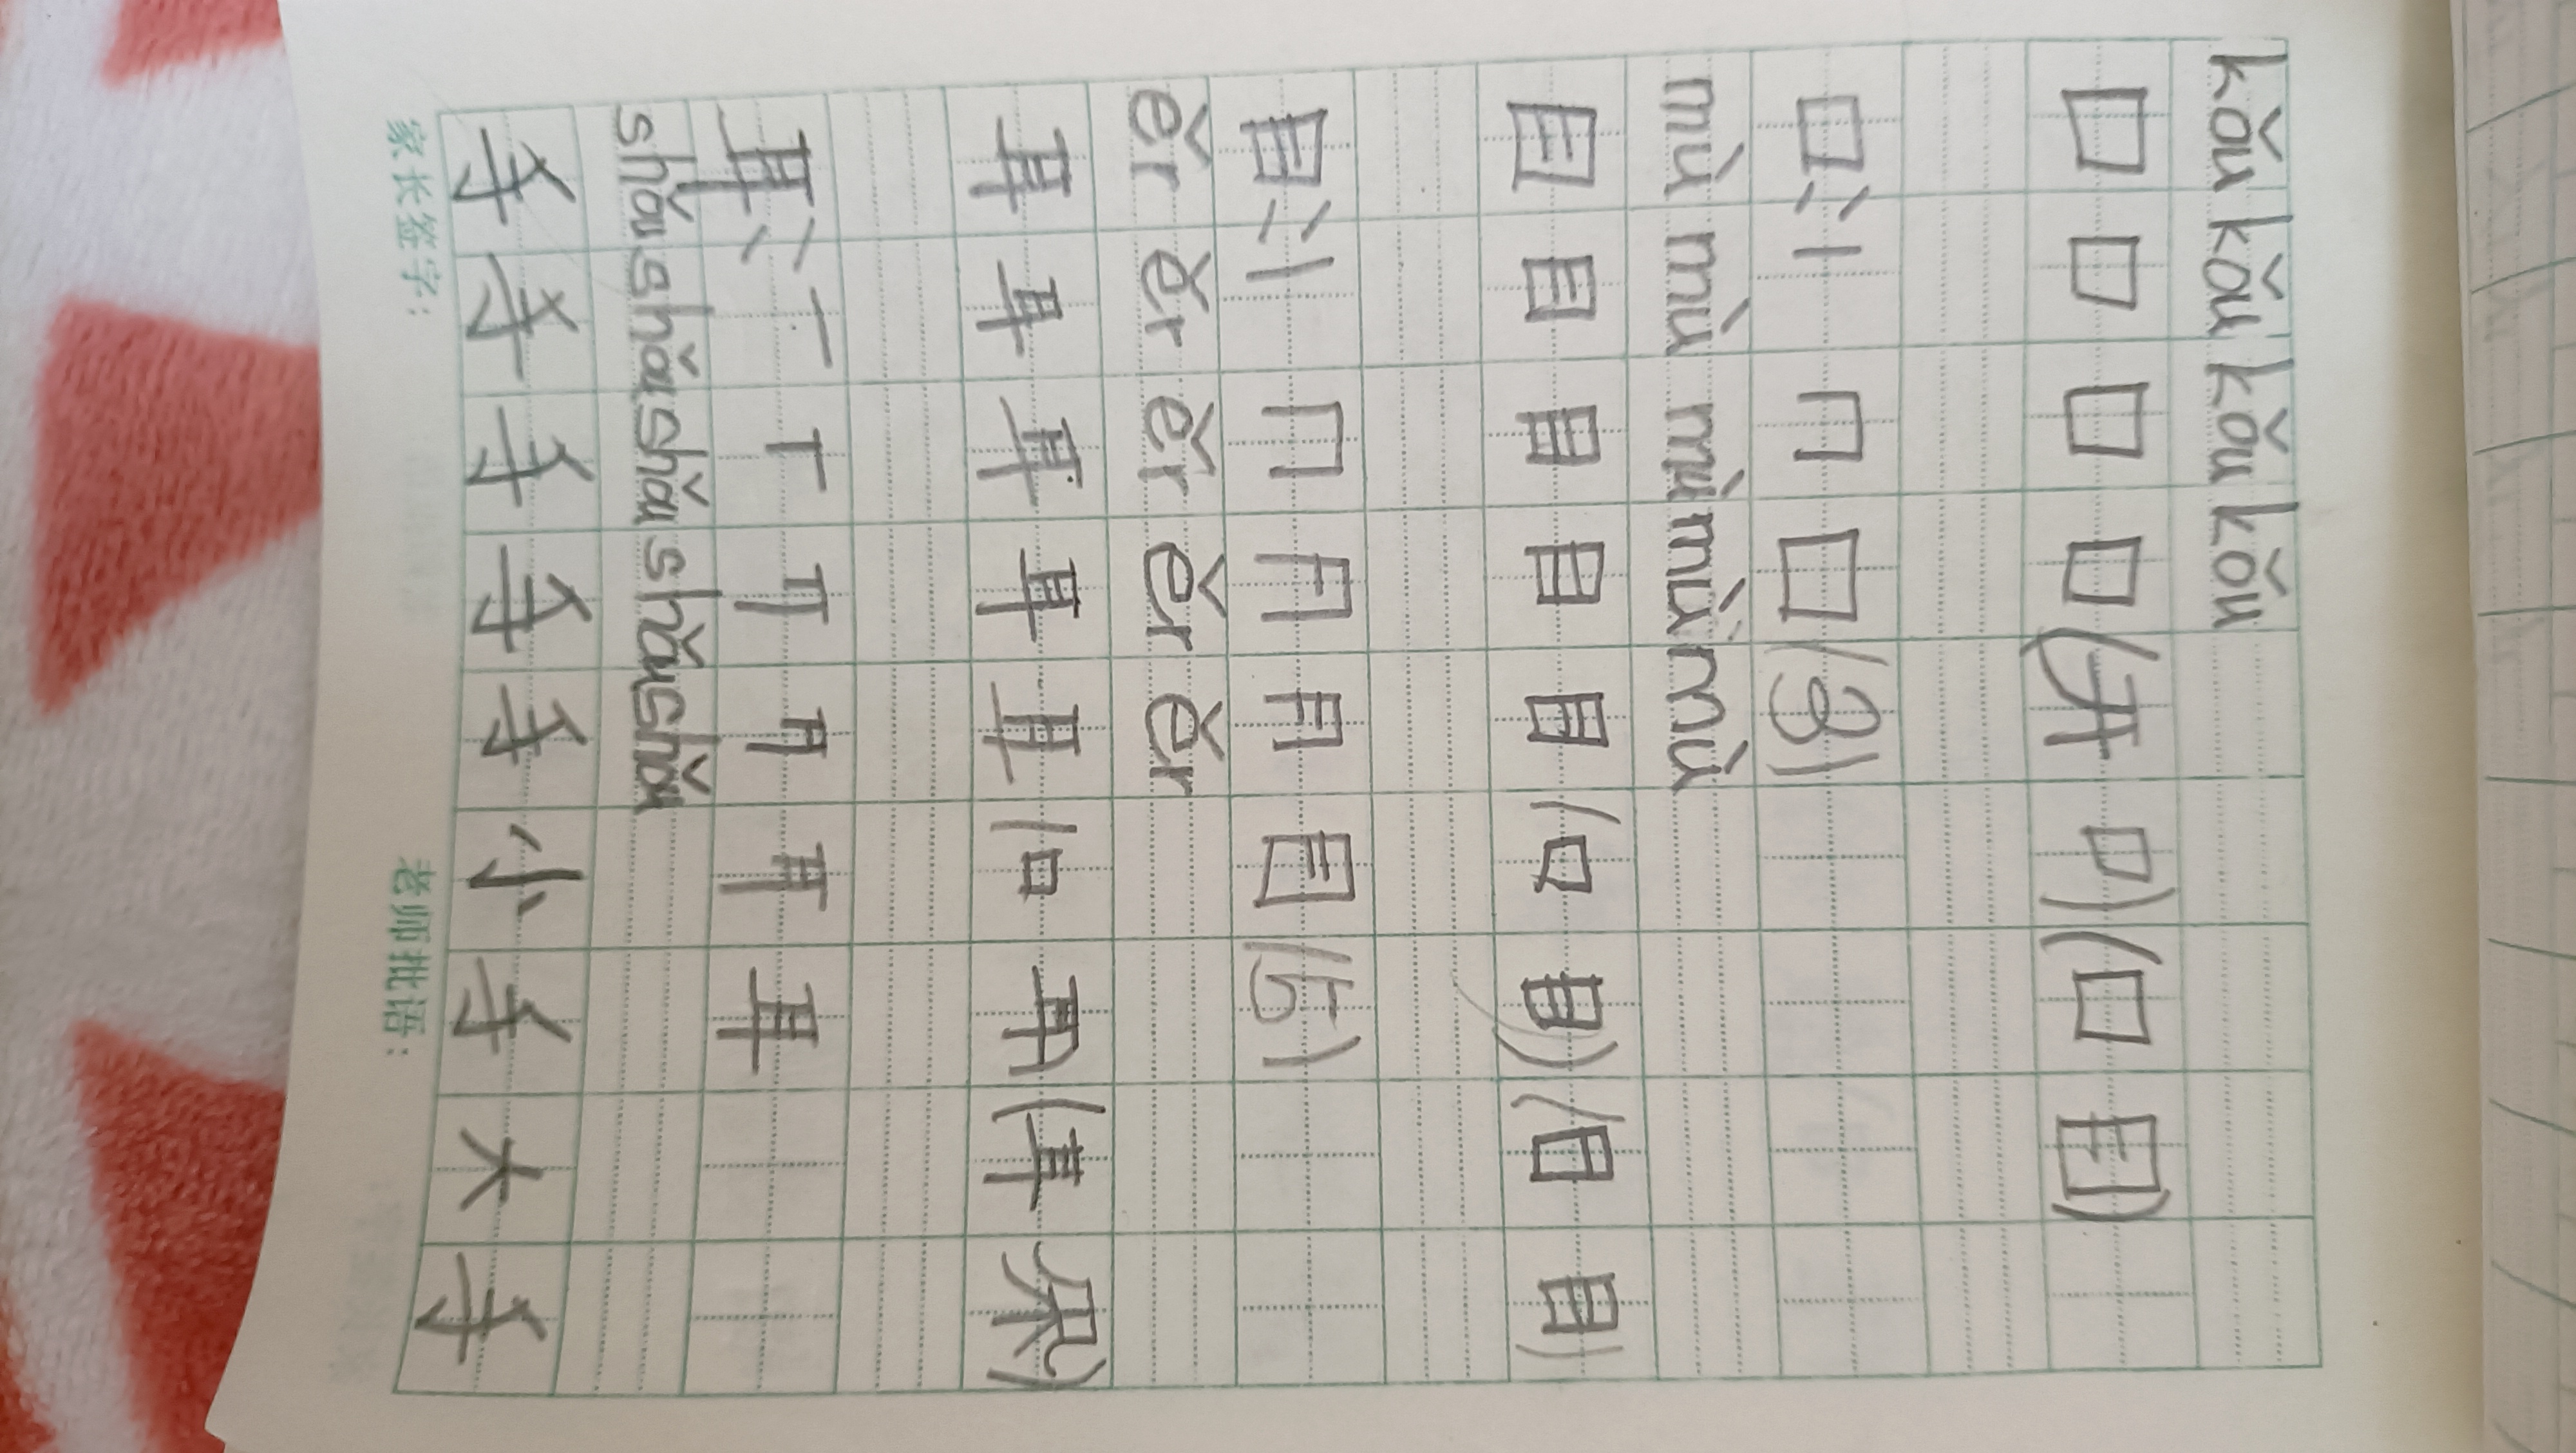 kǒu kǒu kǒu kǒu
口口口口(开口)(口目)
口:丨冂口(3)
mù mù mù mù mù
目目目目目(口目)(日目)
目:丨冂月月目(5)
ěr ěr ěr ěr ěr
耳耳耳耳耳(口耳)(耳朵)
耳:一丅耳
shǒu shǒu shǒu shǒu shǒu
手手手手手小手大手
家长签字: 老师批语: